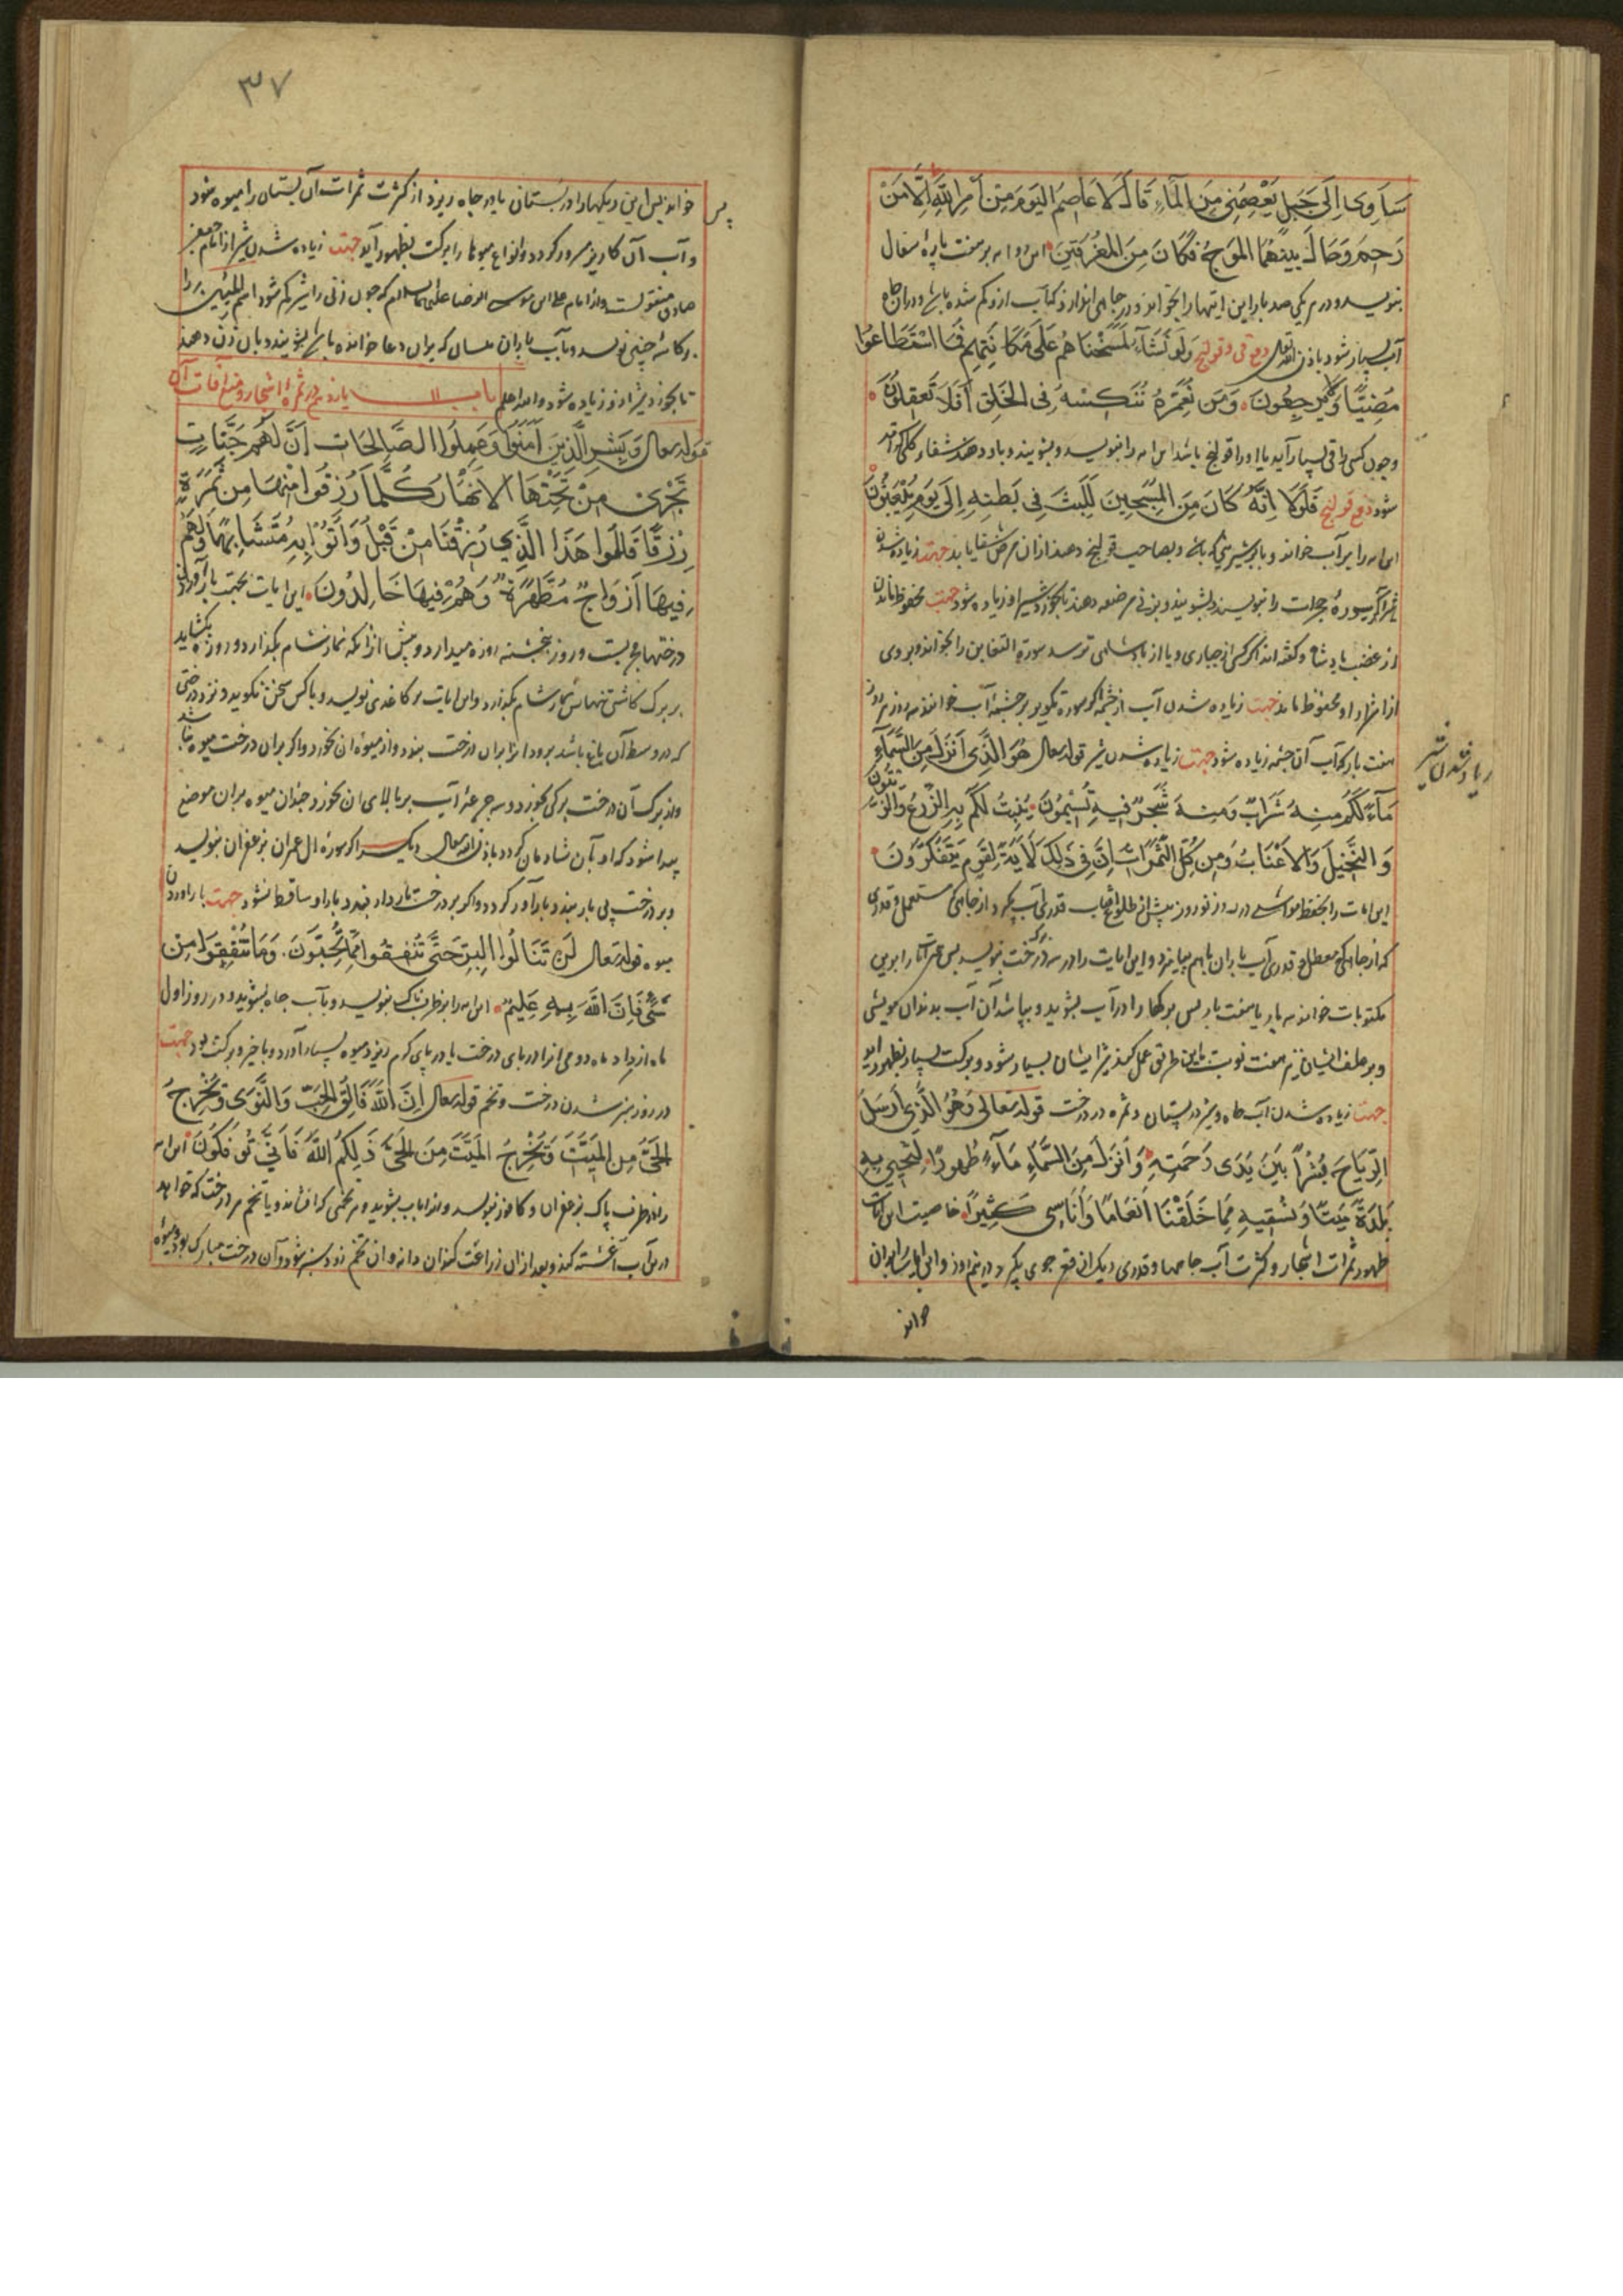 سَاوِی اِلَی جَبَلٍ یَعْصِمُنِی مِنَ الْمَآءِ قَالَ لَا عَاصِمَ الْیَوْمَ مِنْ اَمْرِ اللَّهِ اِلَّا مَنْ
رَحِمَ وَحَالَ بَیْنَهُمَا الْمَوْجُ فَکَانَ مِنَ الْمُغْرَقِینَ این را بر هفت پارهٔ سفال
بنویسد و در هر یکی صد بار این ایتها را بخواند و در چاهی اندازد که آب ازو کم شده باشد و در ان چاه
آب بسیار شود باذن الله تعالی دفع قی و قولنج وَلَوْ نَشَآءُ لَمَسَخْنَاهُمْ عَلَی مَکَانَتِهِمْ فَمَا اسْتَطَاعُوا
مُضِیًّا وَلَا یَرْجِعُونَ وَمَنْ نُعَمِّرْهُ نُنَکِّسْهُ فِی الْخَلْقِ اَفَلَا تَعْقِلُونَ
و چون کسی را قی بسیار آید یا او را قولنج باشد این ایه را بنویسد و بشویند و باو دهند شفاء کلی
شود دفع قولنج فَلَوْلَا اِنَّهُ کَانَ مِنَ الْمُسَبِّحِینَ لَلَبِثَ فِی بَطْنِهِ اِلَی یَوْمِ یُبْعَثُونَ
این ایه را بر آب خواند و بصاحب قولنج دهند ازان مرض شفا یابد جهت زیاده شدن
شیر اگر سورهٔ حجرات را بنویسند و بشویند و بزنی مرضعه دهند تا بخورد شیر او زیاده شود جهت محفوظ ماندن
از غضب پادشاه و گفته اند اگر کسی از جباری و یا از پادشاهی ترسد سورة التغابن را بخواند و بر وی
از شر او محفوظ ماند جهت زیاده شدن آب از چشمه اگر سوره تکویر بر چشمهٔ آب خوانند سه روز هر روز
هفت بار که آب آن چشمه زیاده شود جهت زیاده شدن شیر قوله تعالی هُوَ الَّذِی اَنْزَلَ مِنَ السَّمَآءِ
مَآءً لَکُمْ مِنْهُ شَرَابٌ وَمِنْهُ شَجَرٌ فِیهِ تُسِیمُونَ یُنْبِتُ لَکُمْ بِهِ الزَّرْعَ وَالزَّیْتُونَ
وَالنَّخِیلَ وَالْاَعْنَابَ وَمِنْ کُلِّ الثَّمَرَاتِ اِنَّ فِی ذَلِکَ لَاٰیَةً لِقَوْمٍ یَتَفَکَّرُونَ
این ایات را بحفظ مواشی در روز نوروز پیش از طلوع افتاب قدری آب بگیرد از چاهی که مستعمل و قدری
که از چاهی که معطل و قدری آب باران باهم بیامیزد و این ایات را در برگ درخت بنویسد پس
مکتوبات خواند سه بار یا هفت بار پس برگها را در آب بشوید و بپاشد آن آب بدندان مویشی
و بر علف ایشان نیز هفت نوبت باین طریق عمل کند شیر ایشان بسیار شود و برکت بسیار بظهور اید
جهت زیاده شدن آب چاه و شیر در پستان و ثمره در درخت قوله تعالی وَهُوَ الَّذِی اَرْسَلَ
الرِّیَاحَ بُشْرًا بَیْنَ یَدَیْ رَحْمَتِهِ وَاَنْزَلَ مِنَ السَّمَآءِ مَآءً طَهُورًا لِنُحْیِیَ بِهِ
بَلْدَةً مَیْتًا وَنُسْقِیَهِ مِمَّا خَلَقْنَا اَنْعَامًا وَاَنَاسِیَّ کَثِیرًا خاصیت این ایات
ظهور ثمرات اشجار و کثرت آب چاهها و قدری دیگ
خواند
زیاد شدن شیر
۳۷
خواند پس این دیگها را در بستان یا در چاه ریزد از کثرت ثمرات آن بستان را میوه شود
پس
و آب آن کاریز مسرور گردد و انواع میوها را برکت بظهور آید جهت زیاده شدن شیر از امام جعفر
صادق منقولست و از امام علی بن موسی الرضا علیهما السلام که چون زنی را شیر کم شود
بر کاسهٔ چینی نویسد و باب باران نیسان که بران دعا خوانده باشد بشویند و بان زن دهند
تا بخورد شیر او زیاده شود والله اعلم باب یازدهم در ثمرهٔ اشجار و منع افات آن
قوله تعالی وَبَشِّرِ الَّذِینَ اٰمَنُوا وَعَمِلُوا الصَّالِحَاتِ اَنَّ لَهُمْ جَنَّاتٍ
تَجْرِی مِنْ تَحْتِهَا الْاَنْهَارُ کُلَّمَا رُزِقُوا مِنْهَا مِنْ ثَمَرَةٍ
رِزْقًا قَالُوا هَذَا الَّذِی رُزِقْنَا مِنْ قَبْلُ وَاُتُوا بِهِ مُتَشَابِهًا وَلَهُمْ
فِیهَا اَزْوَاجٌ مُطَهَّرَةٌ وَهُمْ فِیهَا خَالِدُونَ این ایات بجهت بارآوردن
درختها مجربست و روز پنجشنبه روزه میدارد و پیش ازانکه نماز شام بگذارد و روزه بگشاید
بر برگ کاسنی تنها نماز شام بگذارد و این ایات بر کاغذی نویسد و با کس سخن نگوید و نزد درختی
که در وسط آن باغ باشد برود انرا بران درخت بندد و از میوهٔ ان بخورد و اگر بران درخت میوه نباشد
و از برگ آن درخت برگی بخورد و سه جرعهٔ آب بر بالای ان بخورد چندان میوه بران موضع
پیدا شود که او بآن شادمان گردد باذن الله تعالی دیگر اگر سورهٔ ال عمران بزعفران بنویسد
و بر درخت بی بار بندد بارآور گردد و اگر بر درخت باردار بندد بار او ساقط نشود جهت باراوردن
میوه قوله تعالی لَنْ تَنَالُوا الْبِرَّ حَتَّی تُنْفِقُوا مِمَّا تُحِبُّونَ وَمَا تُنْفِقُوا مِنْ
شَیْءٍ فَاِنَّ اللَّهَ بِهِ عَلِیمٌ این ایه را بر ظرف پاک بنویسد و بآب چاه بشوید و در روز اول
ماه از انرا در پای درخت یا در پای کرم ریزد میوه بسیار آورد و با خیر و برکت بود جهت
در روز سبز شدن درخت و تخم قوله تعالی اِنَّ اللَّهَ فَالِقُ الْحَبِّ وَالنَّوَی یُخْرِجُ
الْحَیَّ مِنَ الْمَیِّتِ وَمُخْرِجُ الْمَیِّتِ مِنَ الْحَیِّ ذَلِکُمُ اللَّهُ فَاَنَّی تُؤْفَکُونَ این ایه
را در ظرف پاک بزعفران و کافور بنویسد و انرا باب بشوید و هر تخمی که افشاند و یا تخم هر درخت که خواهد
درین آب آغشته کند و بعد ازان زراعت کند ان دانه و ان تخم زود سبز شود و آن درخت مبارک بود و میوهٔ